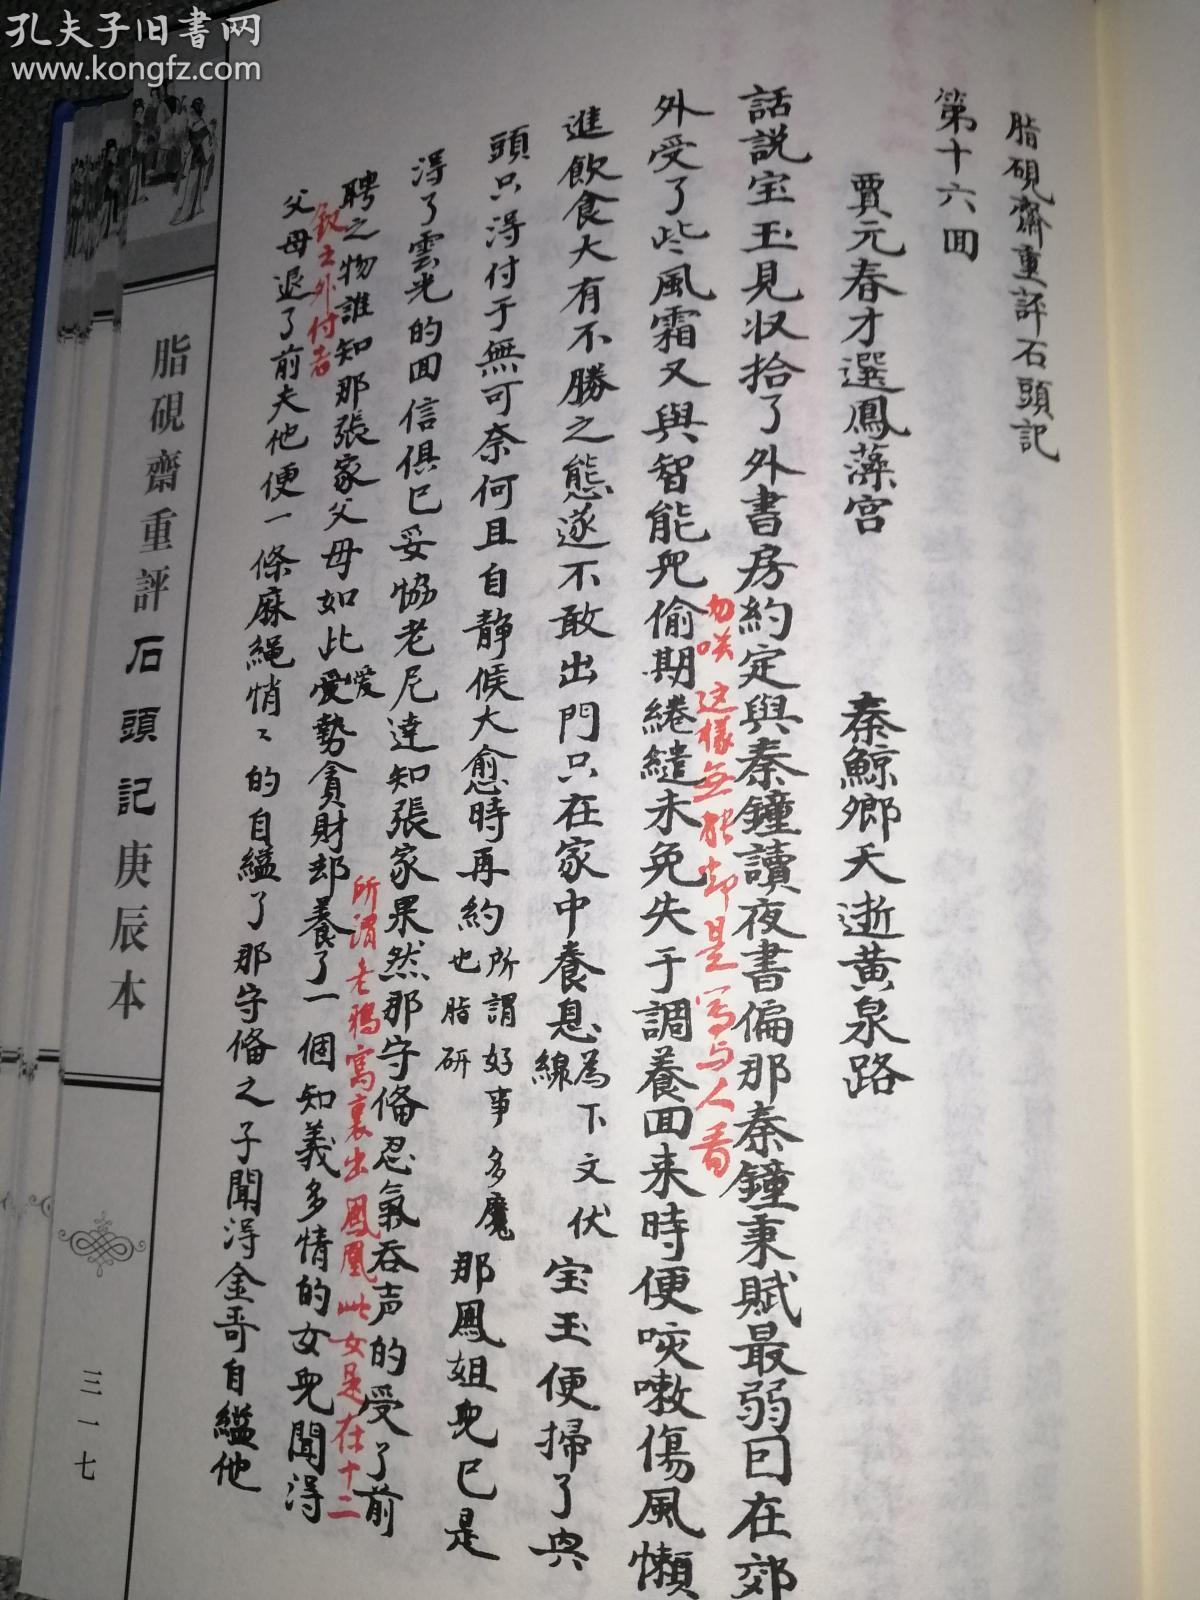 孔夫子旧书网
www.kongfz.com
脂硯齋重評石頭記
第十六回
賈元春才選鳳藻宮 秦鯨鄉夭逝黃泉路
話説宝玉見収拾了外書房約定與秦鐘讀夜書偏那秦鐘秉賦最弱因在郊
勿咲 这樣无能却是写与人看
外受了些風霜又與智能児偷期綣繾未免失于調養回来時便咳嗽傷風懶
進飲食大有不勝之態遂不敢出門只在家中養息
為下文伏
線
宝玉便掃了興
頭只淂付于無可奈何且自静候大愈時再約
所謂好事多魔
也脂研
那鳳姐児已是
淂了雲光的回信俱已妥協老尼達知張家果然那守俻忍氣吞声的受了前
所謂老鴉窩裏出鳳凰此女是在十二
聘之物誰知那張家父母如此愛勢貪財却養了一個知義多情的女児聞淂
愛
釵之外付者
父母退了前夫他便一條麻繩悄〻的自縊了那守俻之子聞淂金哥自縊他
脂硯齋重評石頭記庚辰本
三一七